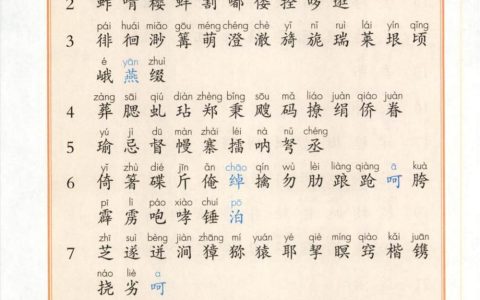 2 蚱 啃 蚌 割 嘟 哆 逛
pái huái miǎo gōu méng chéng chè yǐ nǐ ruì lái yín qǐng
3 徘 徊 渺 篝 萌 澄 澈 旖 旎 瑞 莱 垠 顷
é yān zhuì
峨 燕 缀
zàng sāi qiú diàn zhèng bǐng sōu mǎ liáo juàn qiáo juàn
4 葬 腮 虬 玷 郑 秉 飕 码 撩 绢 侨 眷
yú jì dū màn zhài léi nà nǔ chéng
5 瑜 忌 督 幔 寨 擂 呐 弩 丞
yǐ zhù dié jīn ǎn chāo qín wù lèi liàng qiàng ā kuà
6 倚 箸 碟 斤 俺 绰 擒 勿 肋 踉 跄 呵 胯
pī lì páo xiào chuí pō
霹 雳 咆 哮 锤 泊
zhī suì bèng jiàn zhāng mí yuán yé qiè míng qiào kǎi juān
7 芝 遂 迸 涧 獐 猕 猿 耶 挈 瞑 窍 楷 镌
náo liè ā
挠 劣 呵